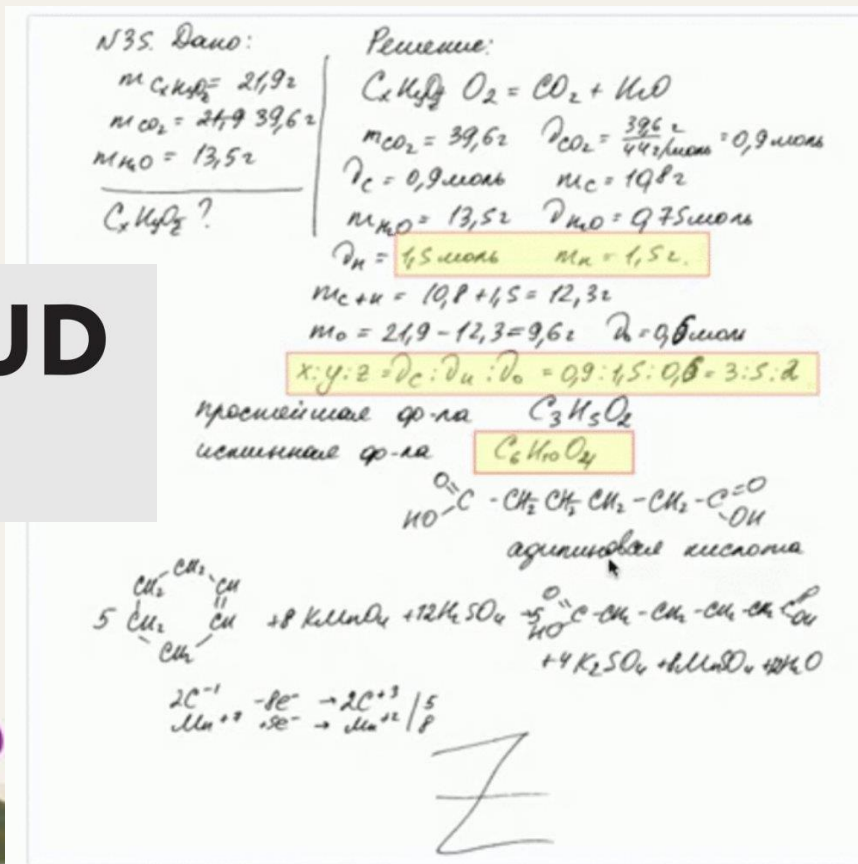 N35. Дано:
m CxHyOz = 21,9г
m CO2 = 21,9 39,6г
m H2O = 13,5г
CxHyOz ?
Решение:
CxHyOz O2 = CO2 + H2O
m CO2 = 39,6г ϑ CO2 = 39,6 г / 44 г/моль = 0,9 моль
ϑ C = 0,9 моль m C = 10,8г
m H2O = 13,5г ϑ H2O = 0,75 моль
ϑ H = 1,5 моль m H = 1,5 г.
m C+H = 10,8 + 1,5 = 12,3г
m O = 21,9 - 12,3 = 9,6г ϑ O = 0,6 моль
x:y:z = ϑ C : ϑ H : ϑ O = 0,9 : 1,5 : 0,6 = 3:5:2
простейшая ф-ла C3H5O2
истинная ф-ла C6H10O4
O
HO C - CH2 CH2 CH2 - CH2 - C =O
-OH
адипиновая кислота
CH2 CH2 CH
5 CH2 CH +8 KMnO4 +12H2SO4 → 5 O HO C - CH2 - CH2 - CH2 - CH2 C O OH
CH2
+4 K2SO4 +8MnSO4 +12H2O
2C-1 -8e- → 2C+3 | 5
Mn+7 +5e- → Mn+2 | 8
Z
UD